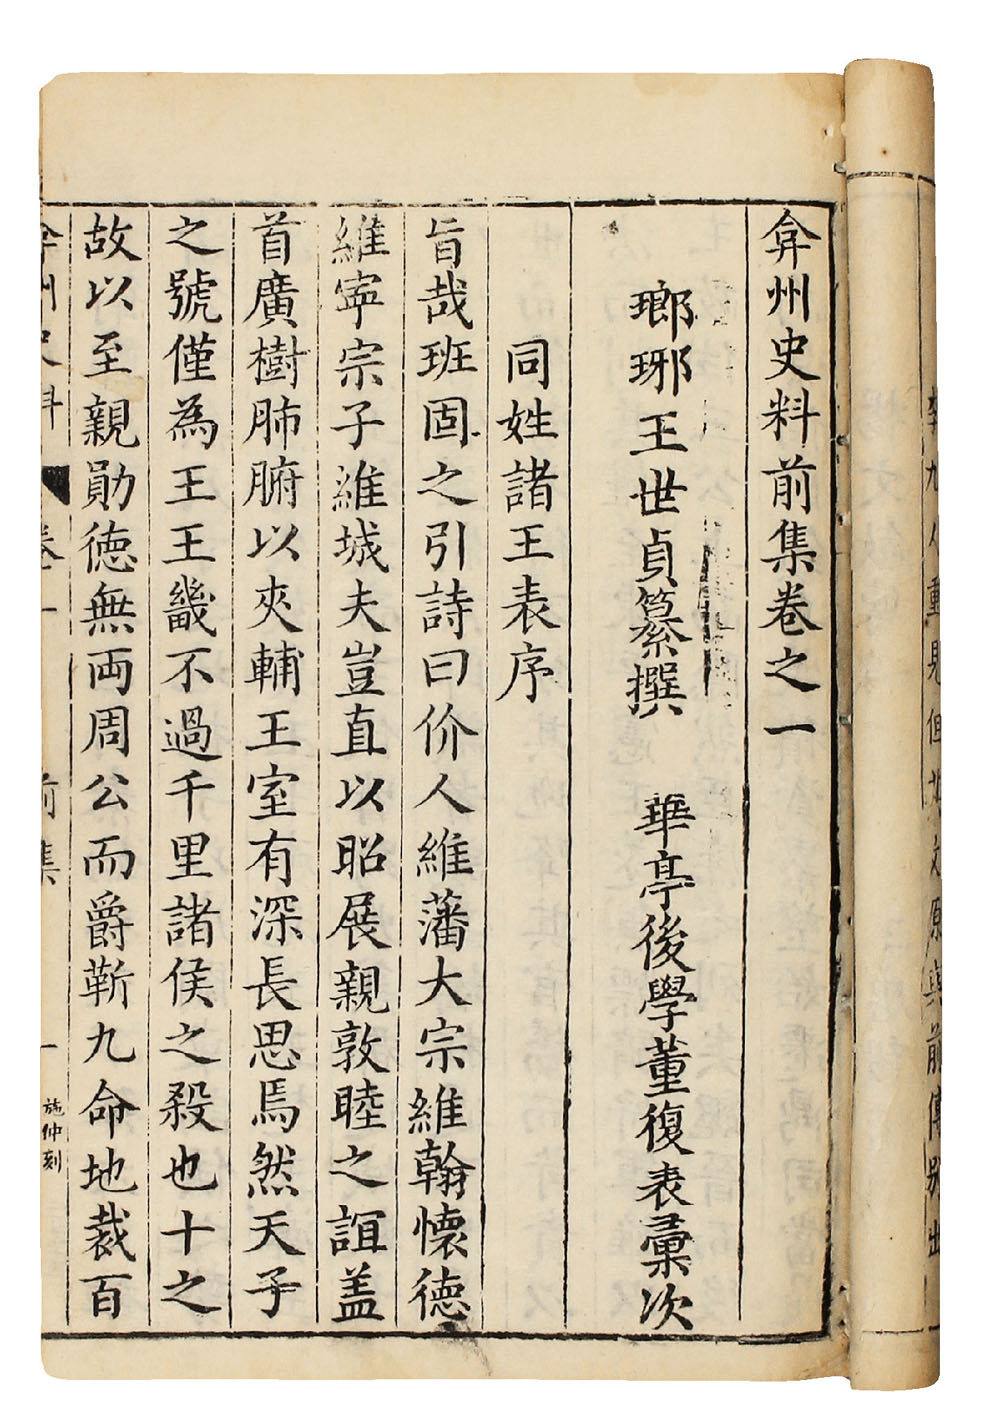 弇州史料前集卷之一
瑯琊王世貞纂撰　華亭後學董復表彙次
同姓諸王表序
旨哉班固之引詩曰价人維藩大宗維翰懷德
維寧宗子維城夫豈直以昭展親敦睦之誼盖
首廣樹肺腑以夾輔王室有深長思焉然天子
之號僅為王王畿不過千里諸侯之殺也十之
故以至親勛德無両周公而爵靳九命地裁百
弇州史料　卷一　前集　一　施仲刻
九人重見但
原與前傳別出